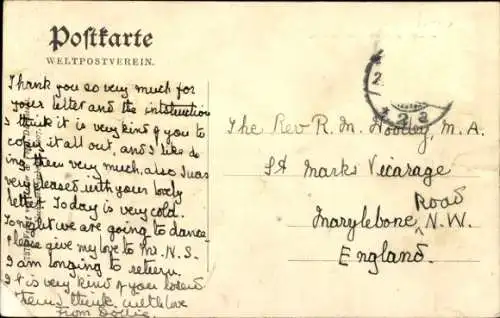 Postkarte
WELTPOSTVEREIN.
Thank you so very much for
your letter and the
I think it is very kind of you to
copy it all out, and I like do
ing them very much, also I was
very pleased with your lovely
letter. Today is very cold.
Tonight we are going to dance
please give my love to Mr. N.S.
I am longing to return
It is very kind of your
think. with love
From Dollie.
The Rev R. M. Woolley, M. A.
St Marks Vicarage
Road
Marylebone, N. W.
England.